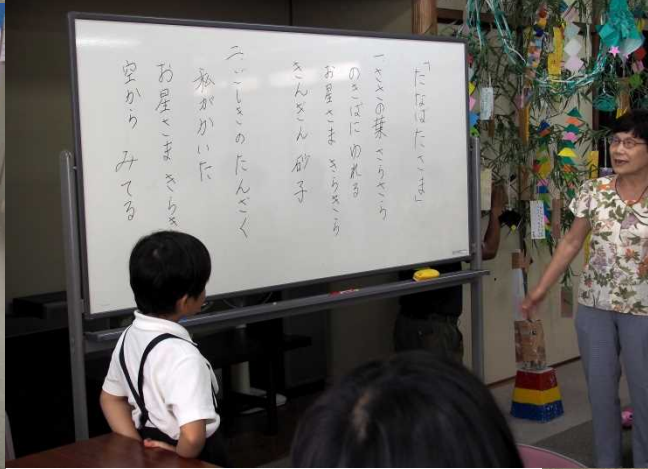 「たなばたさま」
一ささの葉 さらさら
のきばに ゆれる
お星さま きらきら
きんぎん 砂子
二ごしきの たんざく
私がかいた
お星さま きらき
空から みてる